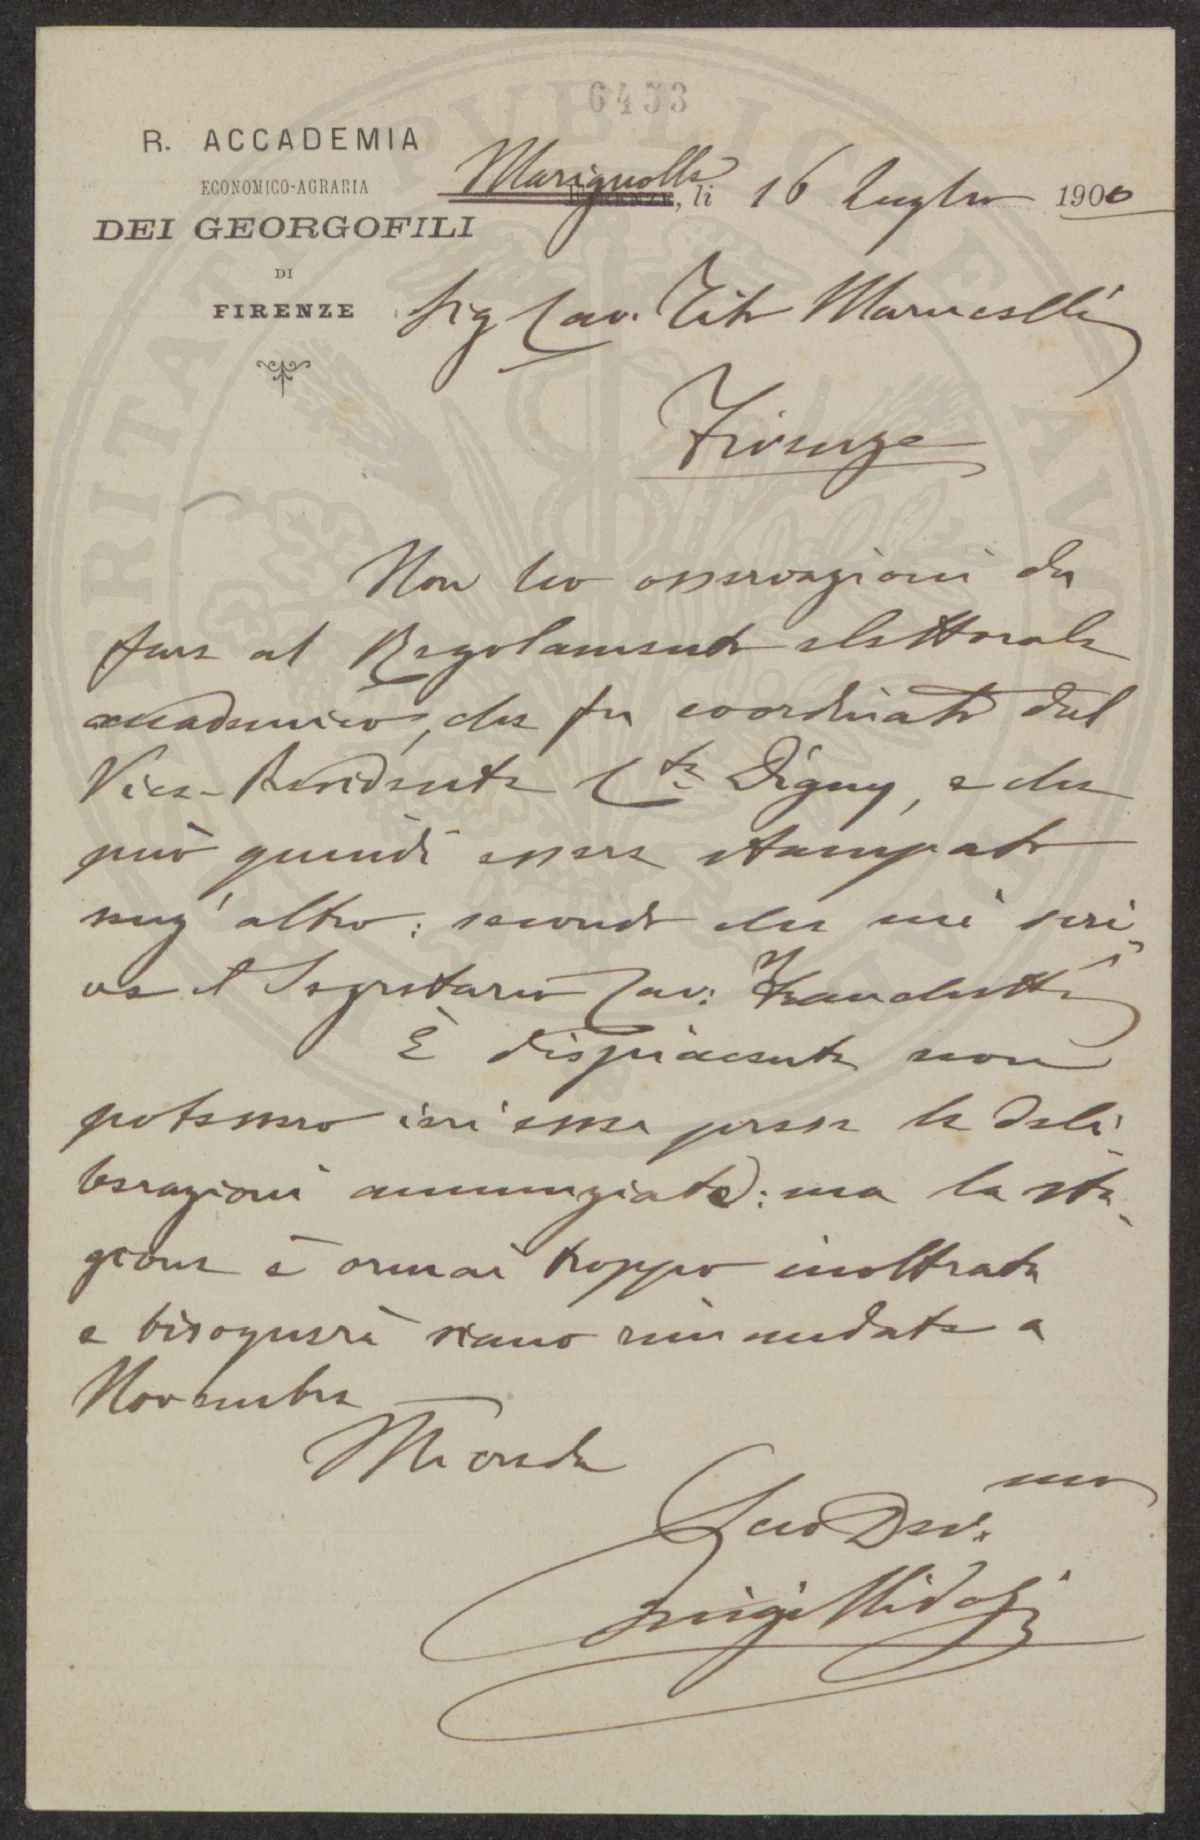 6453
R. ACCADEMIA
ECONOMICO-AGRARIA
DEI GEORGOFILI
DI
FIRENZE
Marignolle
FIRENZE, li 16 Luglio 1900
Sig Cav. Tito Marucelli
Firenze
Non ho osservazioni da
fare al Regolamento elettorale
accademico, che fu coordinato dal
Vice-Presidente Cte Digny, e che
può quindi essere stampato
senz'altro: secondo che mi scri
ve il Segretario Cav: Franchetti
È dispiacente non
potessero ieri esser prese le deli
berazioni annunziate: ma la sta
gione è ormai troppo inoltrata
e bisognerà siano rimandate a
Novembre
Mi creda
Suo Dev.mo
Luigi Ridolfi